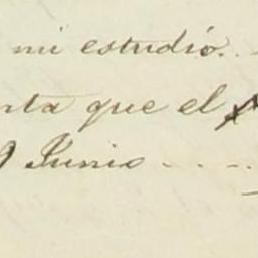 mi estudió. -
nta que el
9 Junio - - - -